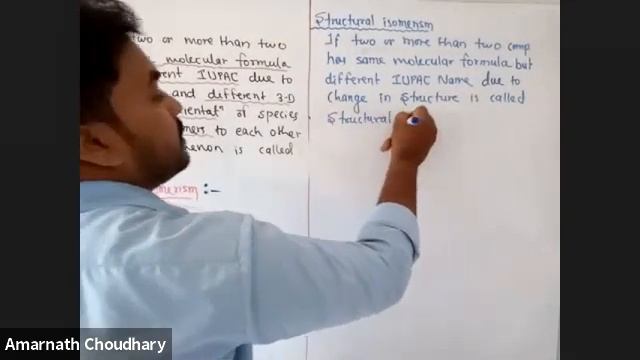 two or more than two
molecular formula
IUPAC due to
and different 3-D
of species
to each other
is called
:-
Structural isomerism
If two or more than two comp
has same molecular formula but
different IUPAC Name due to
change in structure is called
Structural
Amarnath Choudhary